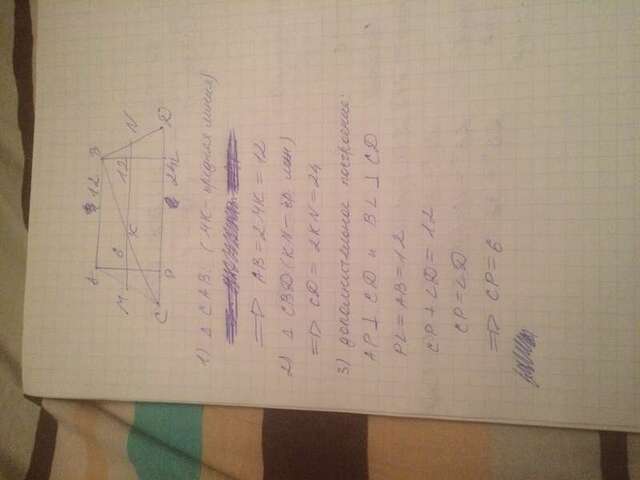 A 12 B
M 6 K 12 N
C P 24 L D
1) Δ CAB. (MK - средняя линия)
=> AB = 2·MK = 12
2) Δ CBD (KN - ср лин)
=> CD = 2KN = 24
3) дополнительное построение:
AP ⊥ CD и BL ⊥ CD
PL = AB = 12
CP + LD = 12
CP = LD
=> CP = 6